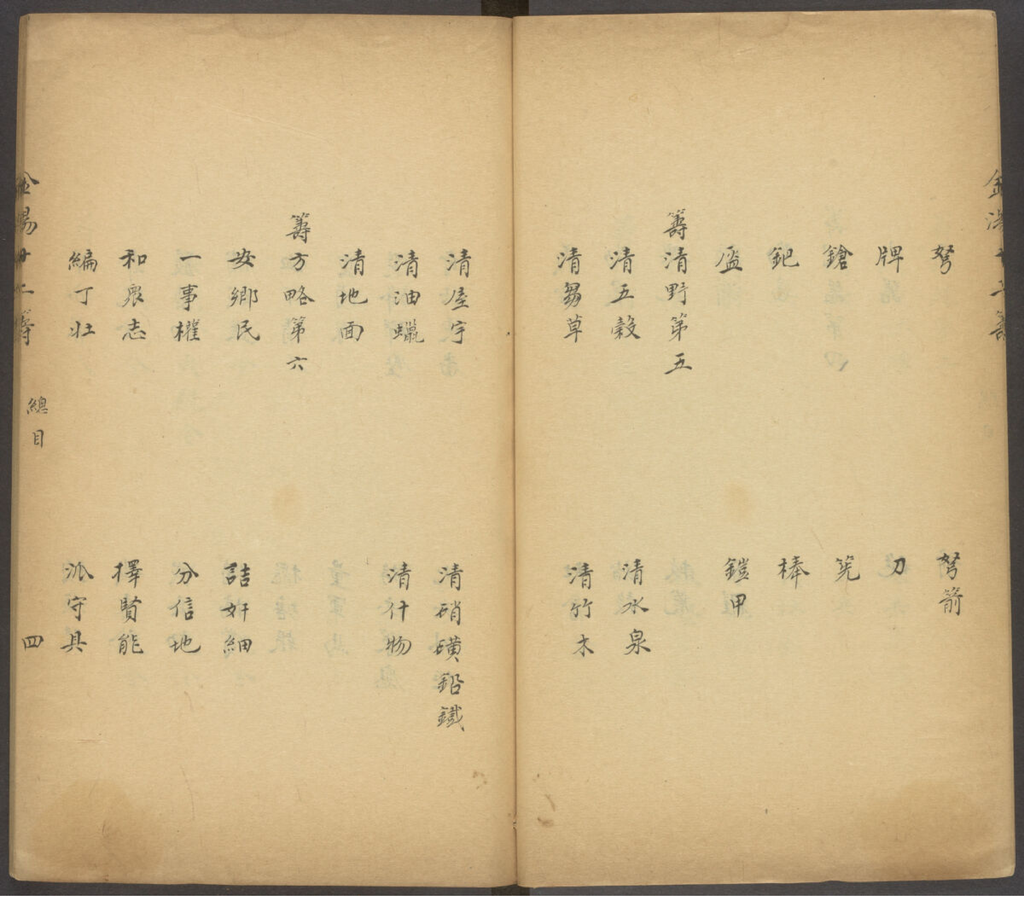 金湯十二籌
弩 弩箭
牌 刀
鎗 筅
鈀 棒
盔 鎧甲
籌清野第五
清五穀 清水泉
清芻草 清竹木
清屋宇 清硝磺鉛鐵
清油蠟 清什物
清地面
籌方略第六
安鄉民 詰奸細
一事權 分信地
和衆志 擇賢能
編丁壯 派守具
金湯十二籌 總目 四